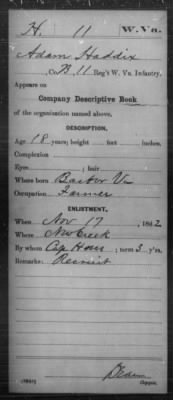 H. 11 W.Va.
Adam Haddix
, Co. B, 11 Reg't W. Va. Infantry.
Appears on
Company Descriptive Book
of the organization named above.
DESCRIPTION.
Age 18 years; height feet inches.
Complexion
Eyes ; hair
Where born Va
Occupation Farmer
ENLISTMENT.
When Nov 17, 1862
Where New Creek
By whom Cap ; term 3 y'rs.
Remarks: Recruit
Copyist.